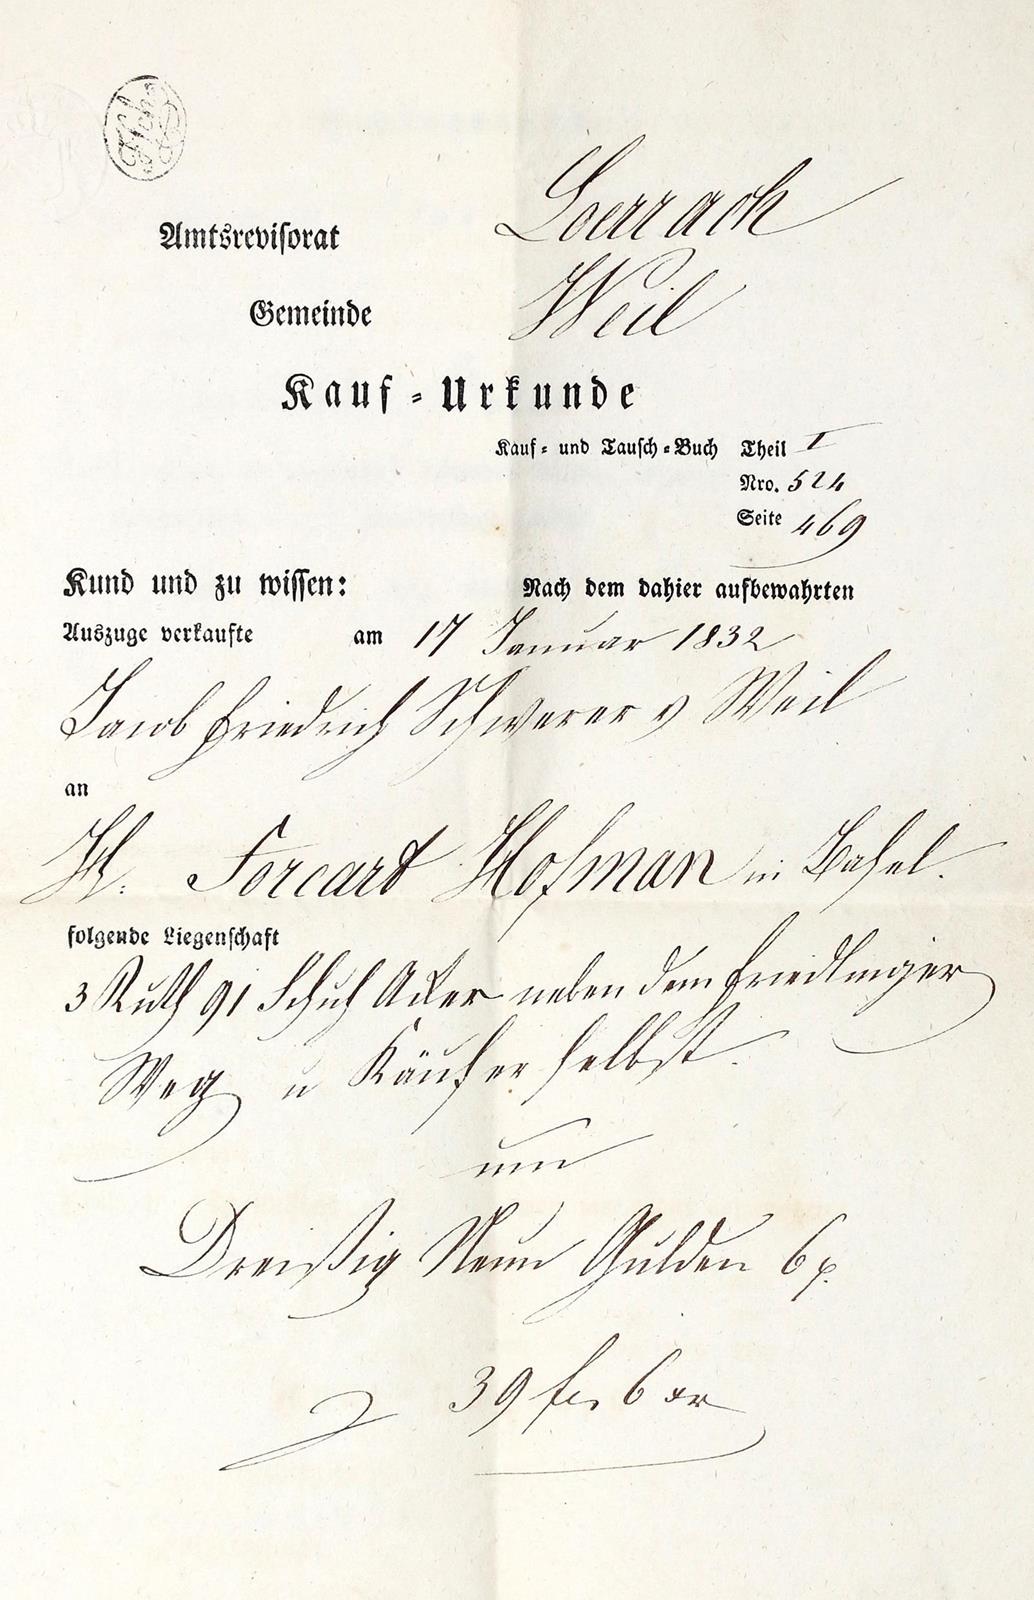 Amtsrevisorat Loerrach
Gemeinde Weil
Kauf-Urkunde
Kauf- und Tausch-Buch Theil I
Nro. 524
Seite 469
Kund und zu wissen: Nach dem dahier aufbewahrten
Auszuge verkaufte am 17 Januar 1832
Jacob Friedrich Schwerer v Weil
an
H. Forcart Hofman in Basel.
folgende Liegenschaft
3 Ruth 91 Schuh Acker neben dem Friedlinger
Weg u Käufer selbst.
um
Dreißig Neun Gulden 6
39 f 6 xr